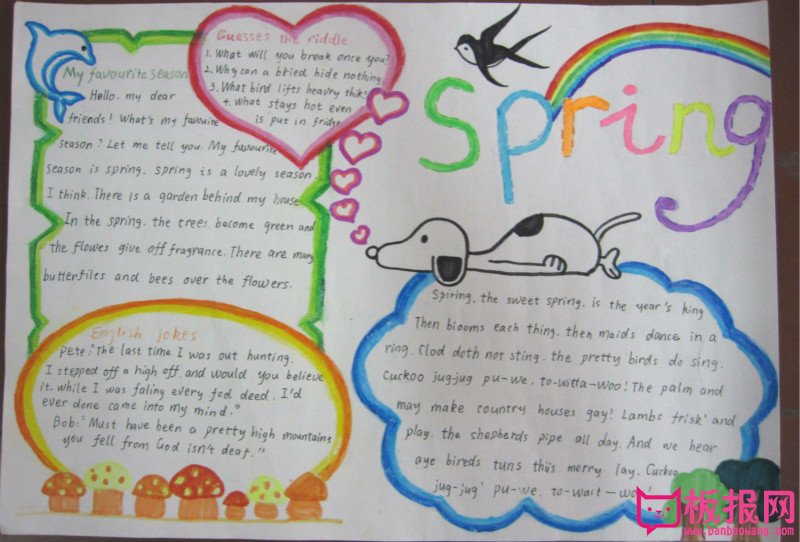 Guesses the riddle
1. What will you break once you?
2. Why can a bried hide nothing
3. What bind lifts heavry thik?
4. What stays hot even
is put in fridge
Spring
My favourite season
Hello. my dear
friends! What's my favouite
season? Let me tell you. My favourite
season is spring. spring is a lovely season.
I think. There is a garden behind my house
In the spring. the trees become green and
the flowes give off fragrance. There are many
butterfiles and bees over the flowers.
English jokes
Pete: "The last time I was out hunting.
I stepped off a high off. and would you believe
it. While I was faling every fod deed. I'd
ever done came into my mind."
Bob: "Must have been a pretty high mountains
you fell from God isn't deaf."
Spiring. the sweet spring. is the year's king
Then biooms each thing. then maids dance. in a
ring. Clod doth not sting. the pretty birds do sing.
Cuckoo jug-jug pu-we. to-witta-woo! The palm and
may make country houses gay! Lambs frisk' and
play. the shepherds pipe all day. And we hear
aye bireds tuns this merry lay. Cuckoo
jug-jug' pu-we. to-wait-
板报网
www.banbaowang.com